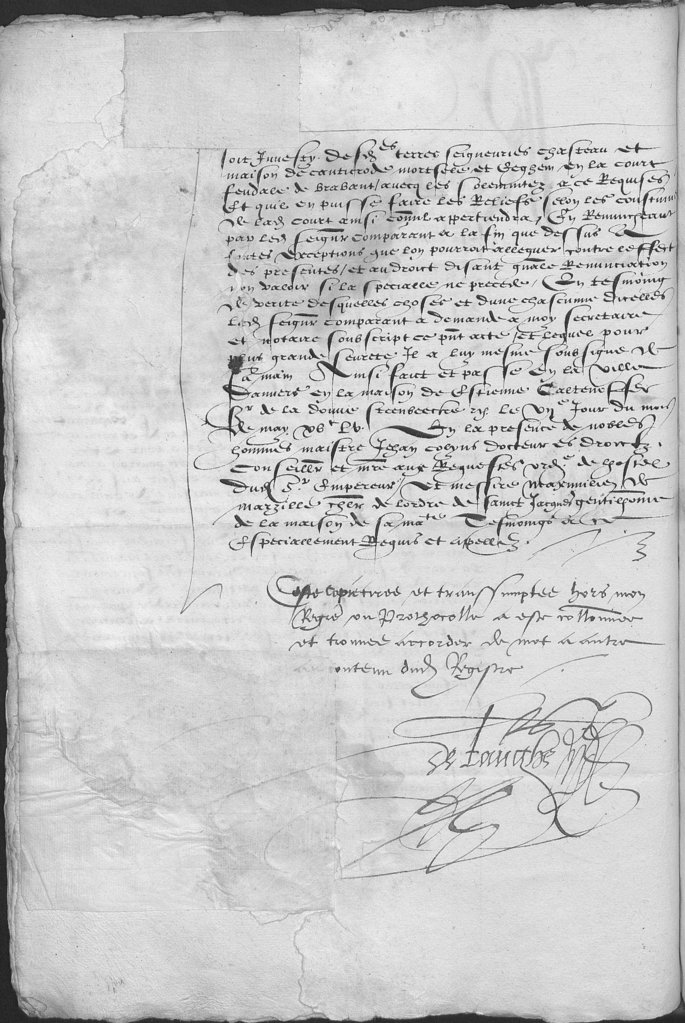 soit Investy. desd es terres seigneuries chasteau et
maison de canticrode mortsele et Eeghem en la court
feudale de brabant / avecq les solempnitez a ce Requises
Et quil en puisse faire les Reliefz selon les coustum
de lad court ainsi Comme appertiendra / En Renunceant
par led seigneur comparant a la fin que dessus A
toutes exceptions que lon pourroit alleguer contre leffect
des presentes / et au droict disant generale Renunciation
non valoir si la specialle ne precede / En tesmoing
de verite desquelles choses et dune chascunne dicelles
led seigneur comparant a demande a moy secretaire
et notaire soubscript ce pnt acte / et lequel pour
plus grande seurete Il a luy mesme soubsigne de
sa main Ainsi faict et passe en la ville
Danvers en la maison de Estienne
Sr de la le VIIe Jour du mois
de may xvc Lv. En la presence de nobles
hommes maistre Jehan Colyns docteur es droictz,
Conseillr et mre aux Requestes ordre de lhostel
dud Sr Empereur / Et messire Maximilien de
chlr de lordre de sainct Jacques gentilhomme
de la maison de sa mate Tesmoings a ce
Especiallement Requis et appellez.
Ceste copie tiree et transsumptee hors mon
Regre ou Prothocolle a este collonnee
et trouvee accorder de mot a autre
au contenu dud Registre